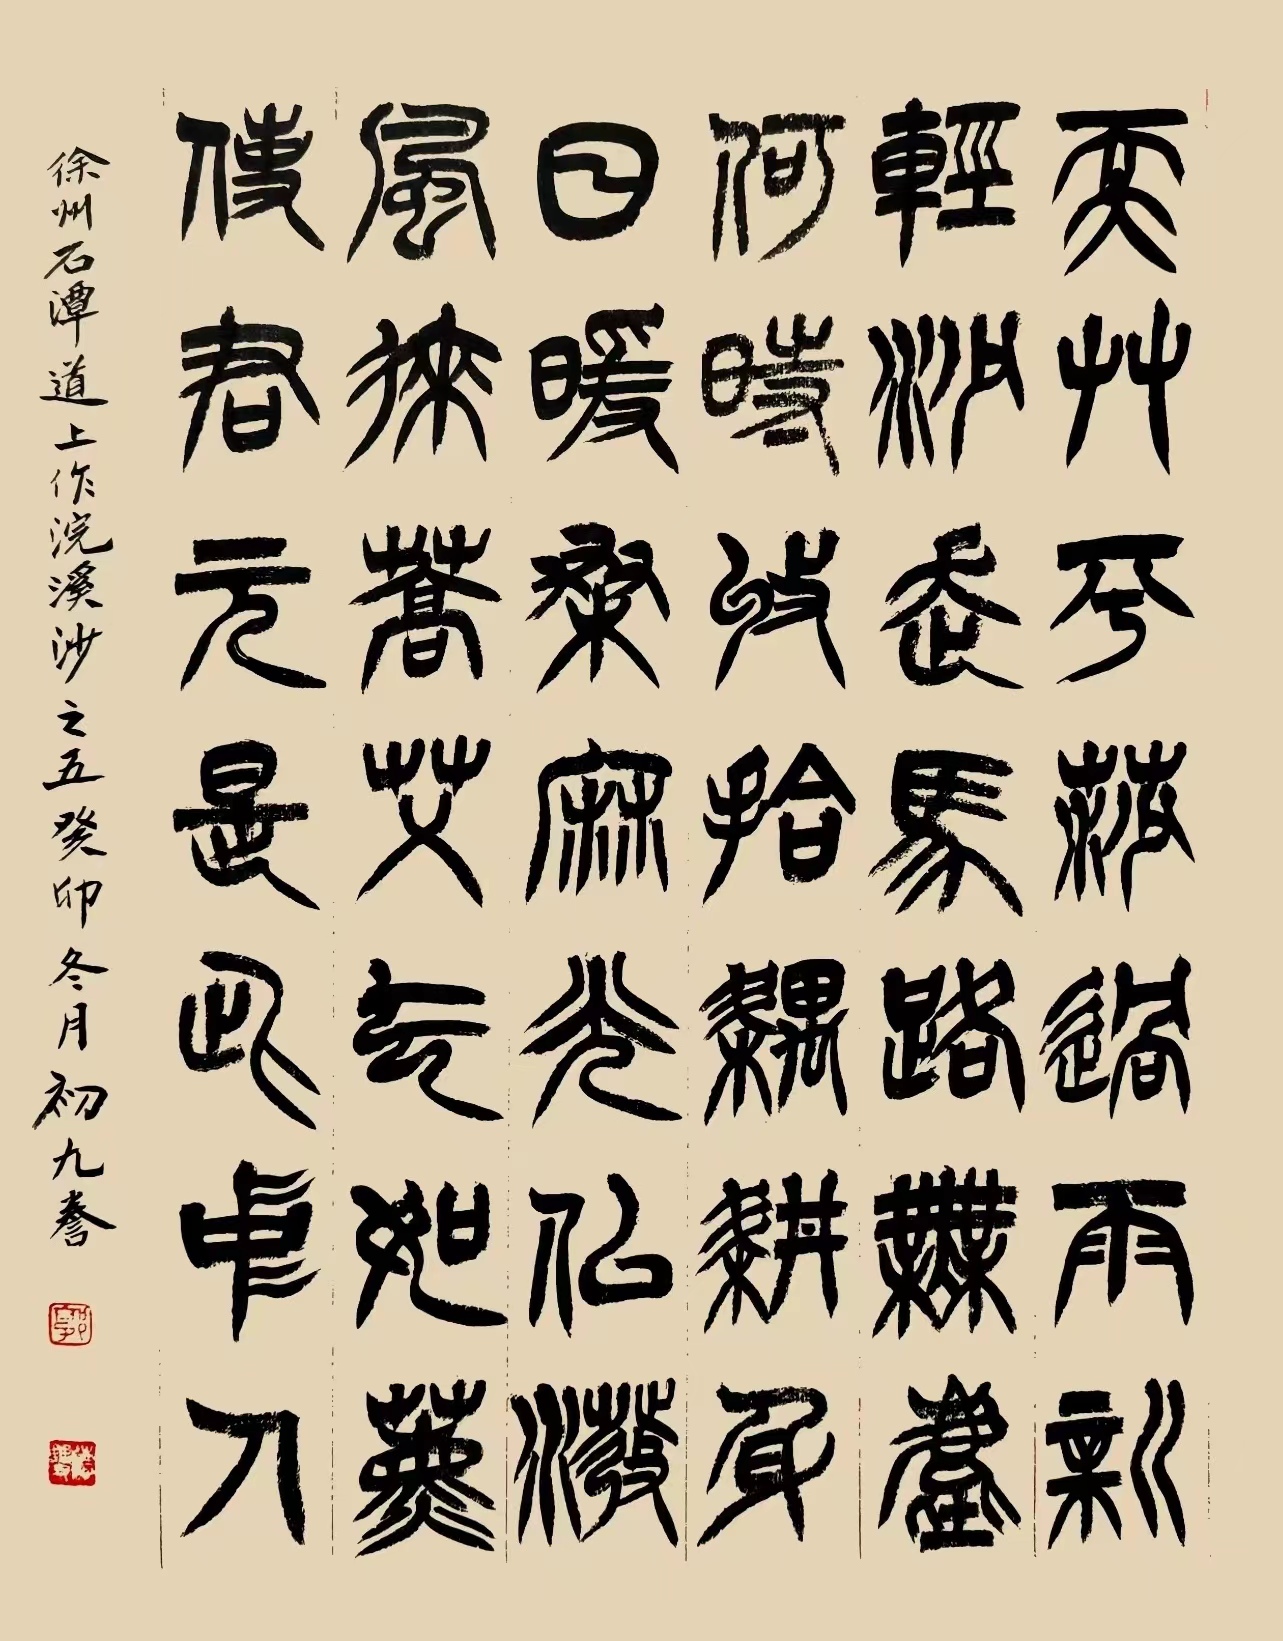 耎艸平莎過雨新
輕沙走馬路無塵
何時收拾耦耕身
日暖桑麻光似潑
風來蒿艾气如薰
使君元是此中人
徐州石潭道上作浣溪沙之五癸卯冬月初九謄